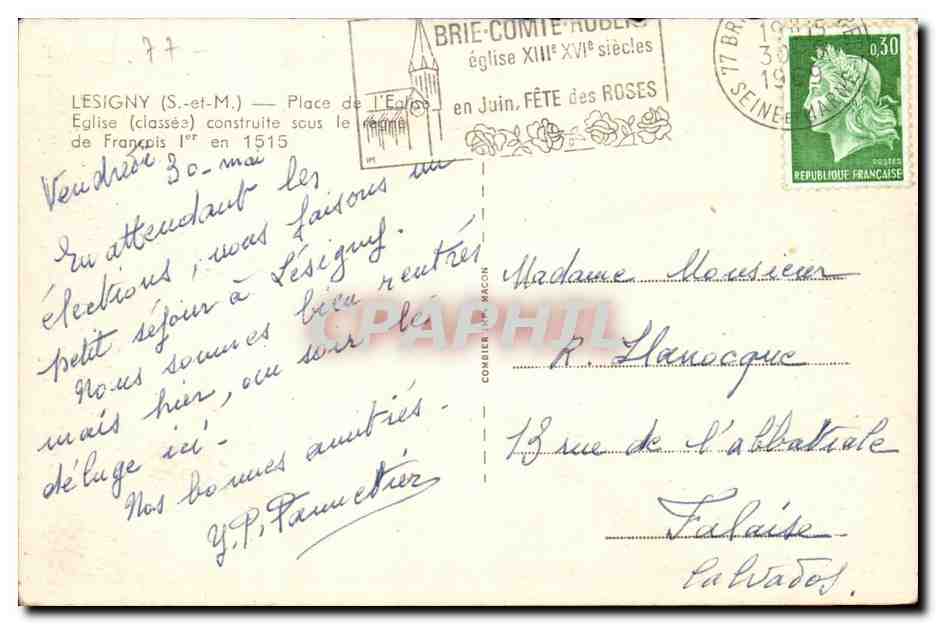 77
LESIGNY (S.-et-M.) — Place de l'Eglise
Eglise (classée) construite sous le règne
de François Ier en 1515
BRIE-COMTE-ROBERT
église XIIIe XVIe siècles
en Juin, FÊTE des ROSES
77 BR
30
19
SEINE et MARNE
0,30
POSTES
REPUBLIQUE FRANÇAISE
Vendredi 30-mai
En attendant les
élections, nous faisons un
petit séjour à Lésigny.
Nous sommes bien rentrés
mais hier, au soir le
déluge ici-
Nos bonnes amitiés-
Y.P. Pannetier
COMBIER IMP. MACON
CPAPHIL
Madame Monsieur
R. Llanocque
13 rue de l'abbatiale
Falaise
Calvados.